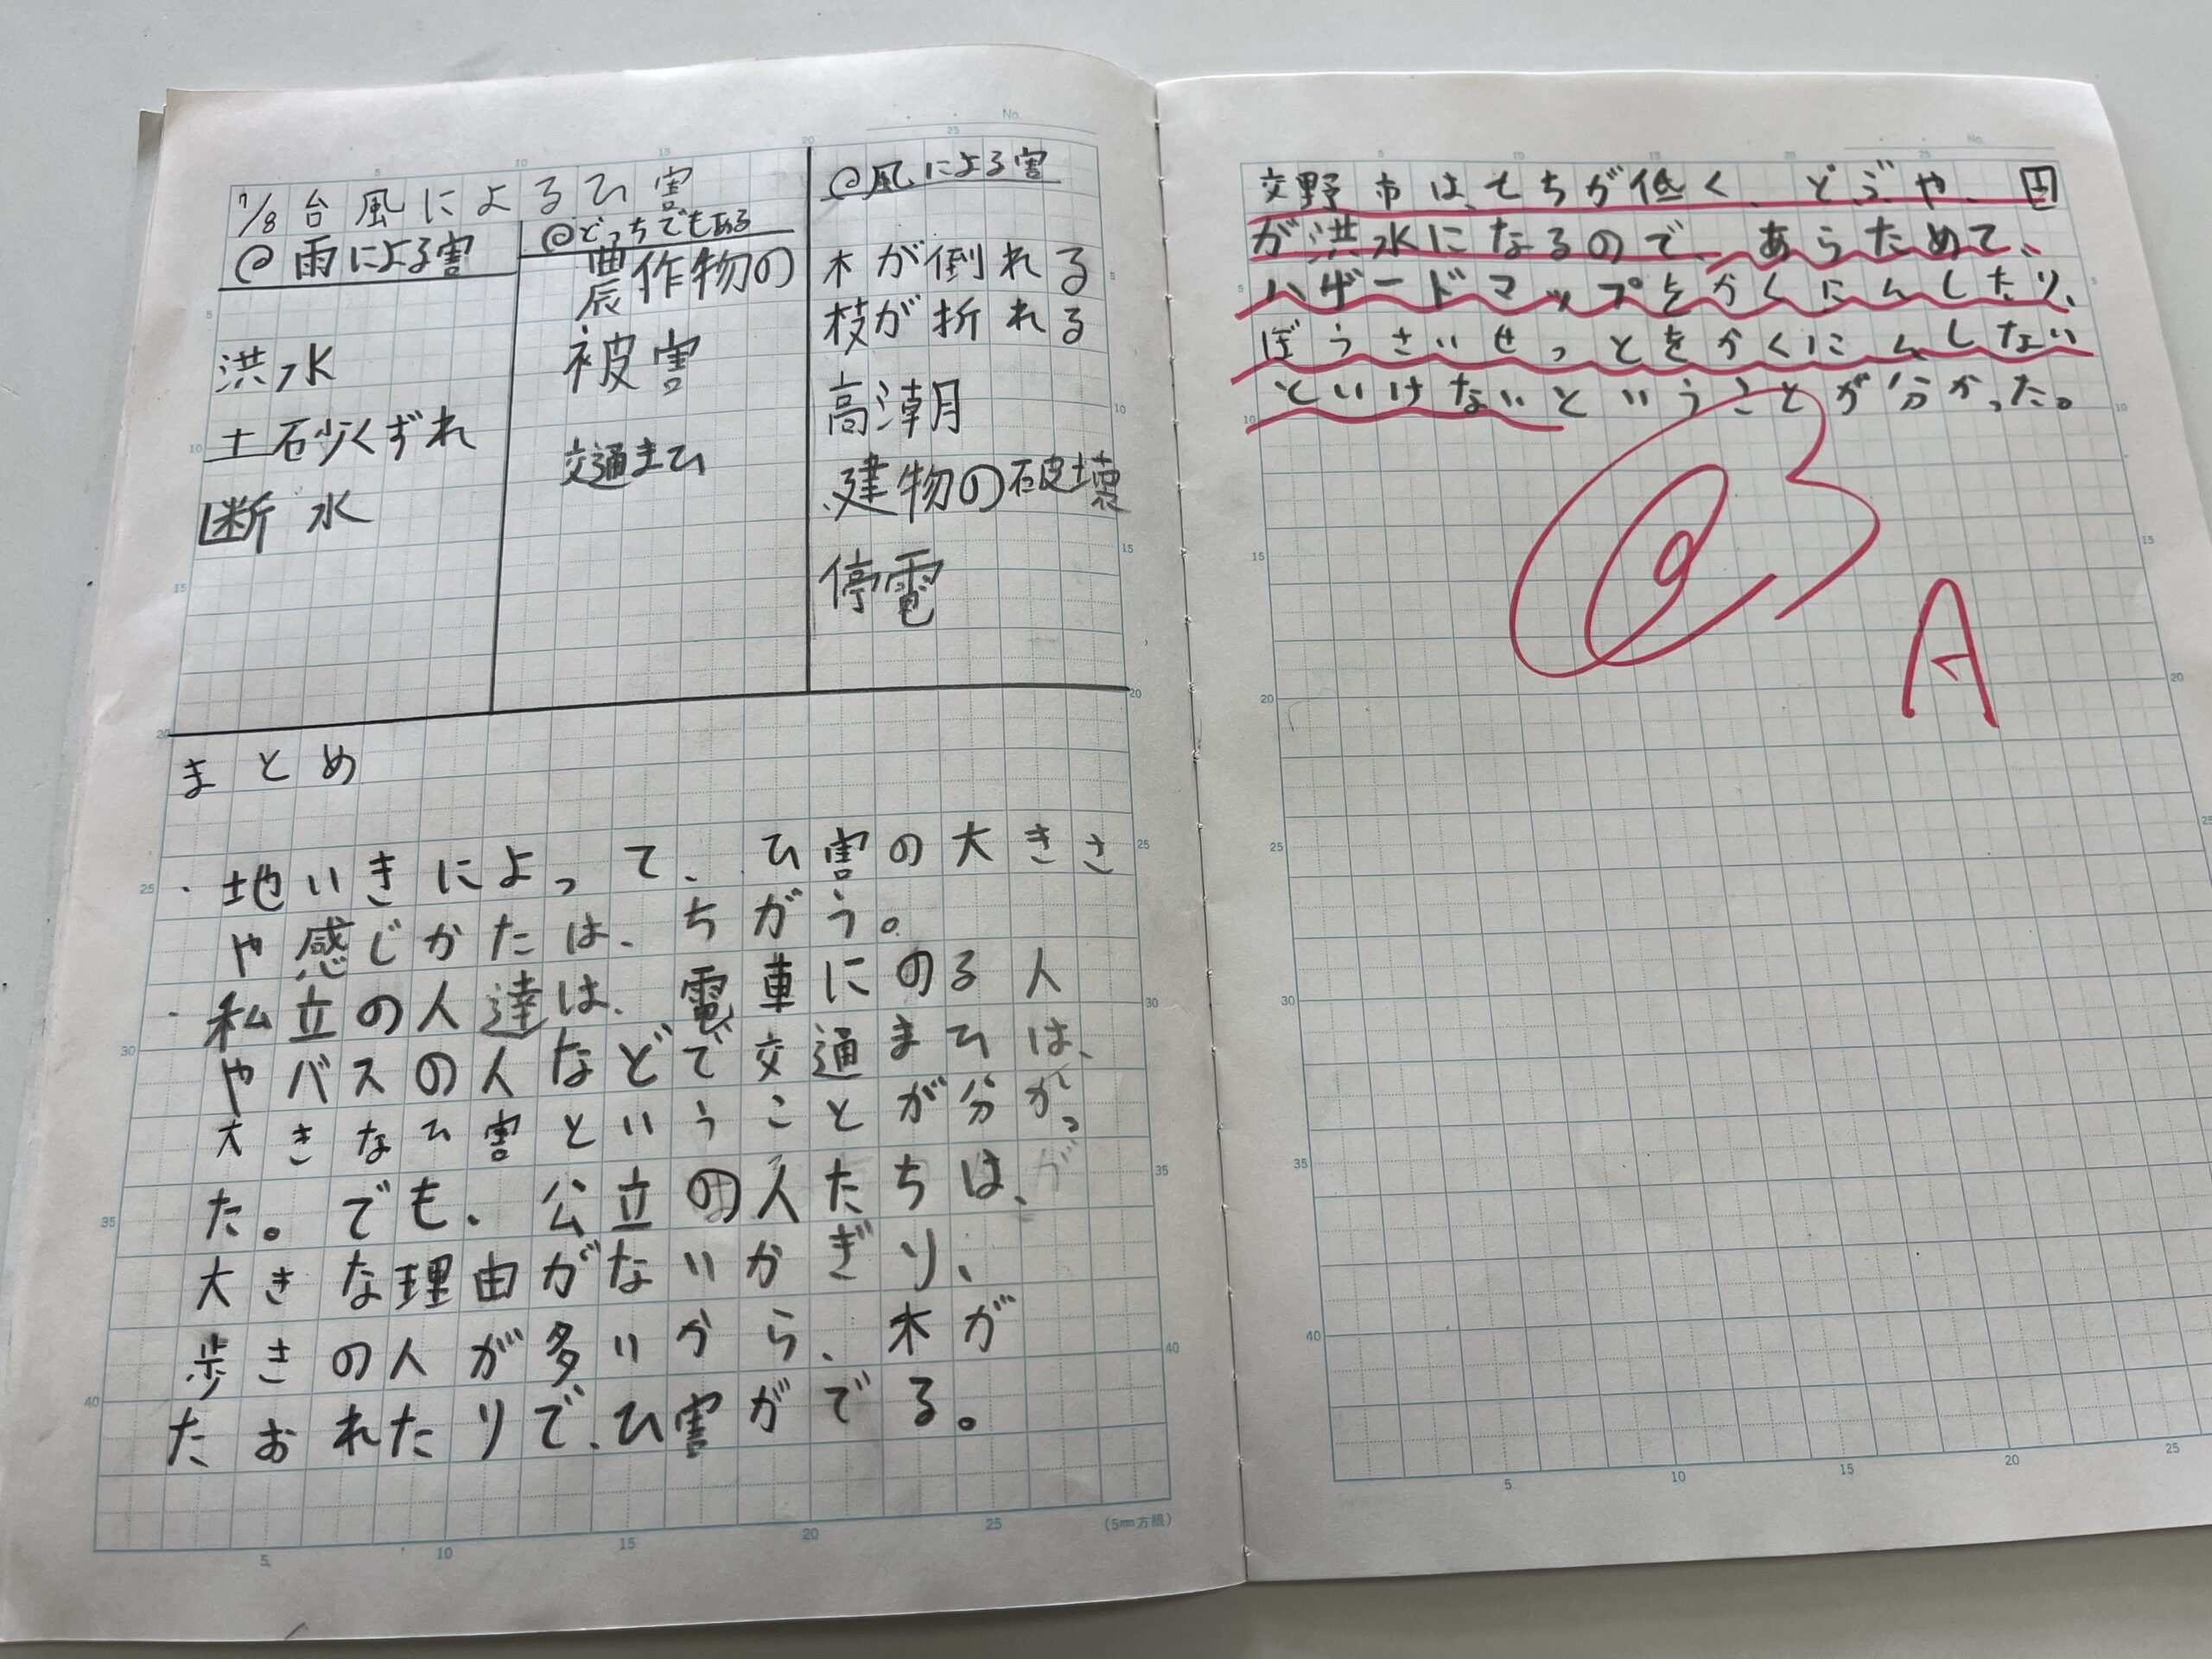 No.
7/8 台風によるひ害
@雨による害
洪水
土石少くずれ
断水
@どっちでもある
農作物の
被害
交通まひ
@風による害
木が倒れる
枝が折れる
高潮
建物の破壊
停電
まとめ
・地いきによって、ひ害の大きさ
や感じかたは、ちがう。
・私立の人達は、電車にのる人
やバスの人などで交通まひは、
大きなひ害ということが分かっ
た。でも、公立の人たちは、
大きな理由がないかぎり、
歩きの人が多いから、木が
たおれたりで、ひ害がでる。
(5mm方眼)
No.
交野市は、とちが低く、どぶや、田
が洪水になるので、あらためて、
ハザードマップをかくにんしたり、
ぼうさいせっとをかくにんしない
といけないということが分かった。
A